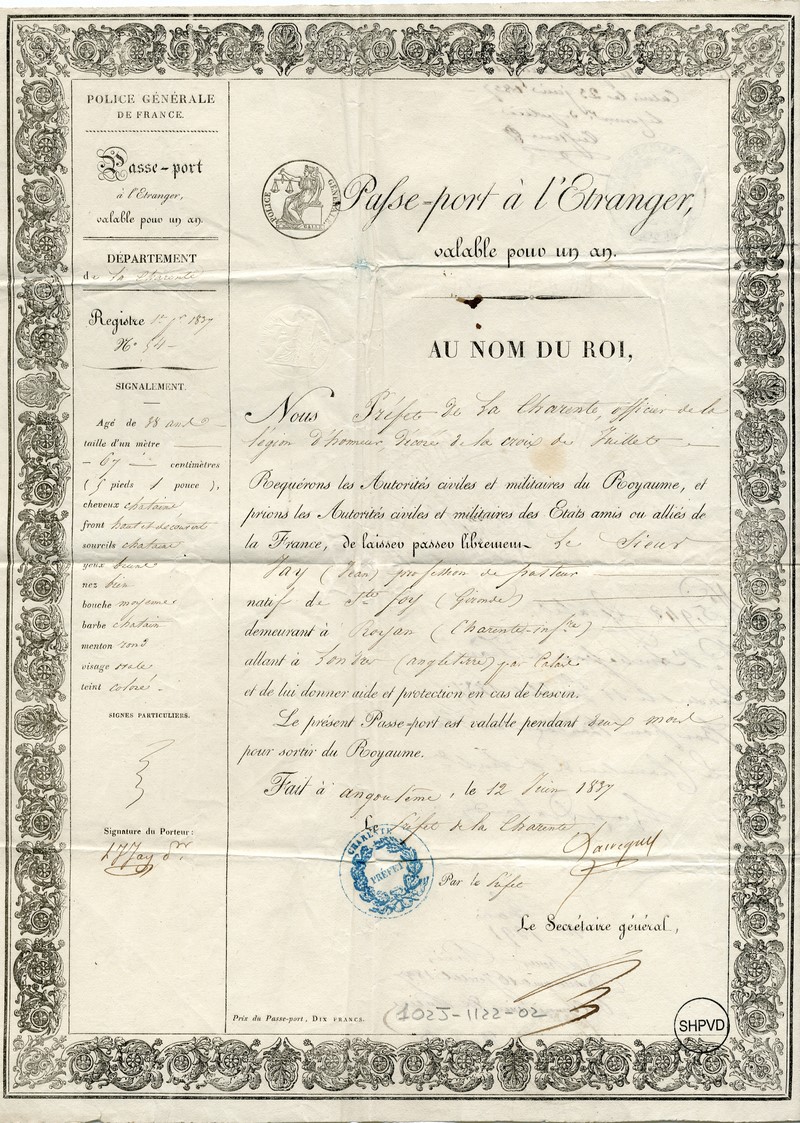 POLICE GÉNÉRALE
DE FRANCE.
Passe-port
à l'Etranger,
valable pour un an.
DÉPARTEMENT
de La Charente
Registre 1er 1837
N° 54
SIGNALEMENT.
Agé de 38 ans
taille d'un mètre
67 centimètres
(5 pieds 1 pouce),
cheveux chatains
front haut et découvert
sourcils chatains
yeux bruns
nez bien
bouche moyenne
barbe chatain
menton rond
visage ovale
teint coloré
SIGNES PARTICULIERS.
Signature du Porteur:
Jay
POLICE GÉNÉRALE
Passe-port à l'Etranger,
valable pour un an.
AU NOM DU ROI,
Nous Préfet de La Charente, officier de la
légion d'honneur, décoré de la croix de Juillet
Requérons les Autorités civiles et militaires du Royaume, et
prions les Autorités civiles et militaires des Etats amis ou alliés de
la France, de laisser passer librement Le Sieur
Jay (Jean) profession de pasteur
natif de Ste foy (Gironde)
demeurant à Royan (Charente-infre)
allant à Londres (angleterre) par Calais
et de lui donner aide et protection en cas de besoin.
Le présent Passe-port est valable pendant deux mois
pour sortir du Royaume.
Fait à angoulême, le 12 Juin 1837
Le Préfet de la Charente
CHARENTE
PRÉFET
Par le Préfet
Le Secrétaire général,
Prix du Passe-port, DIX FRANCS.
(102J-1122-02
SHPVD